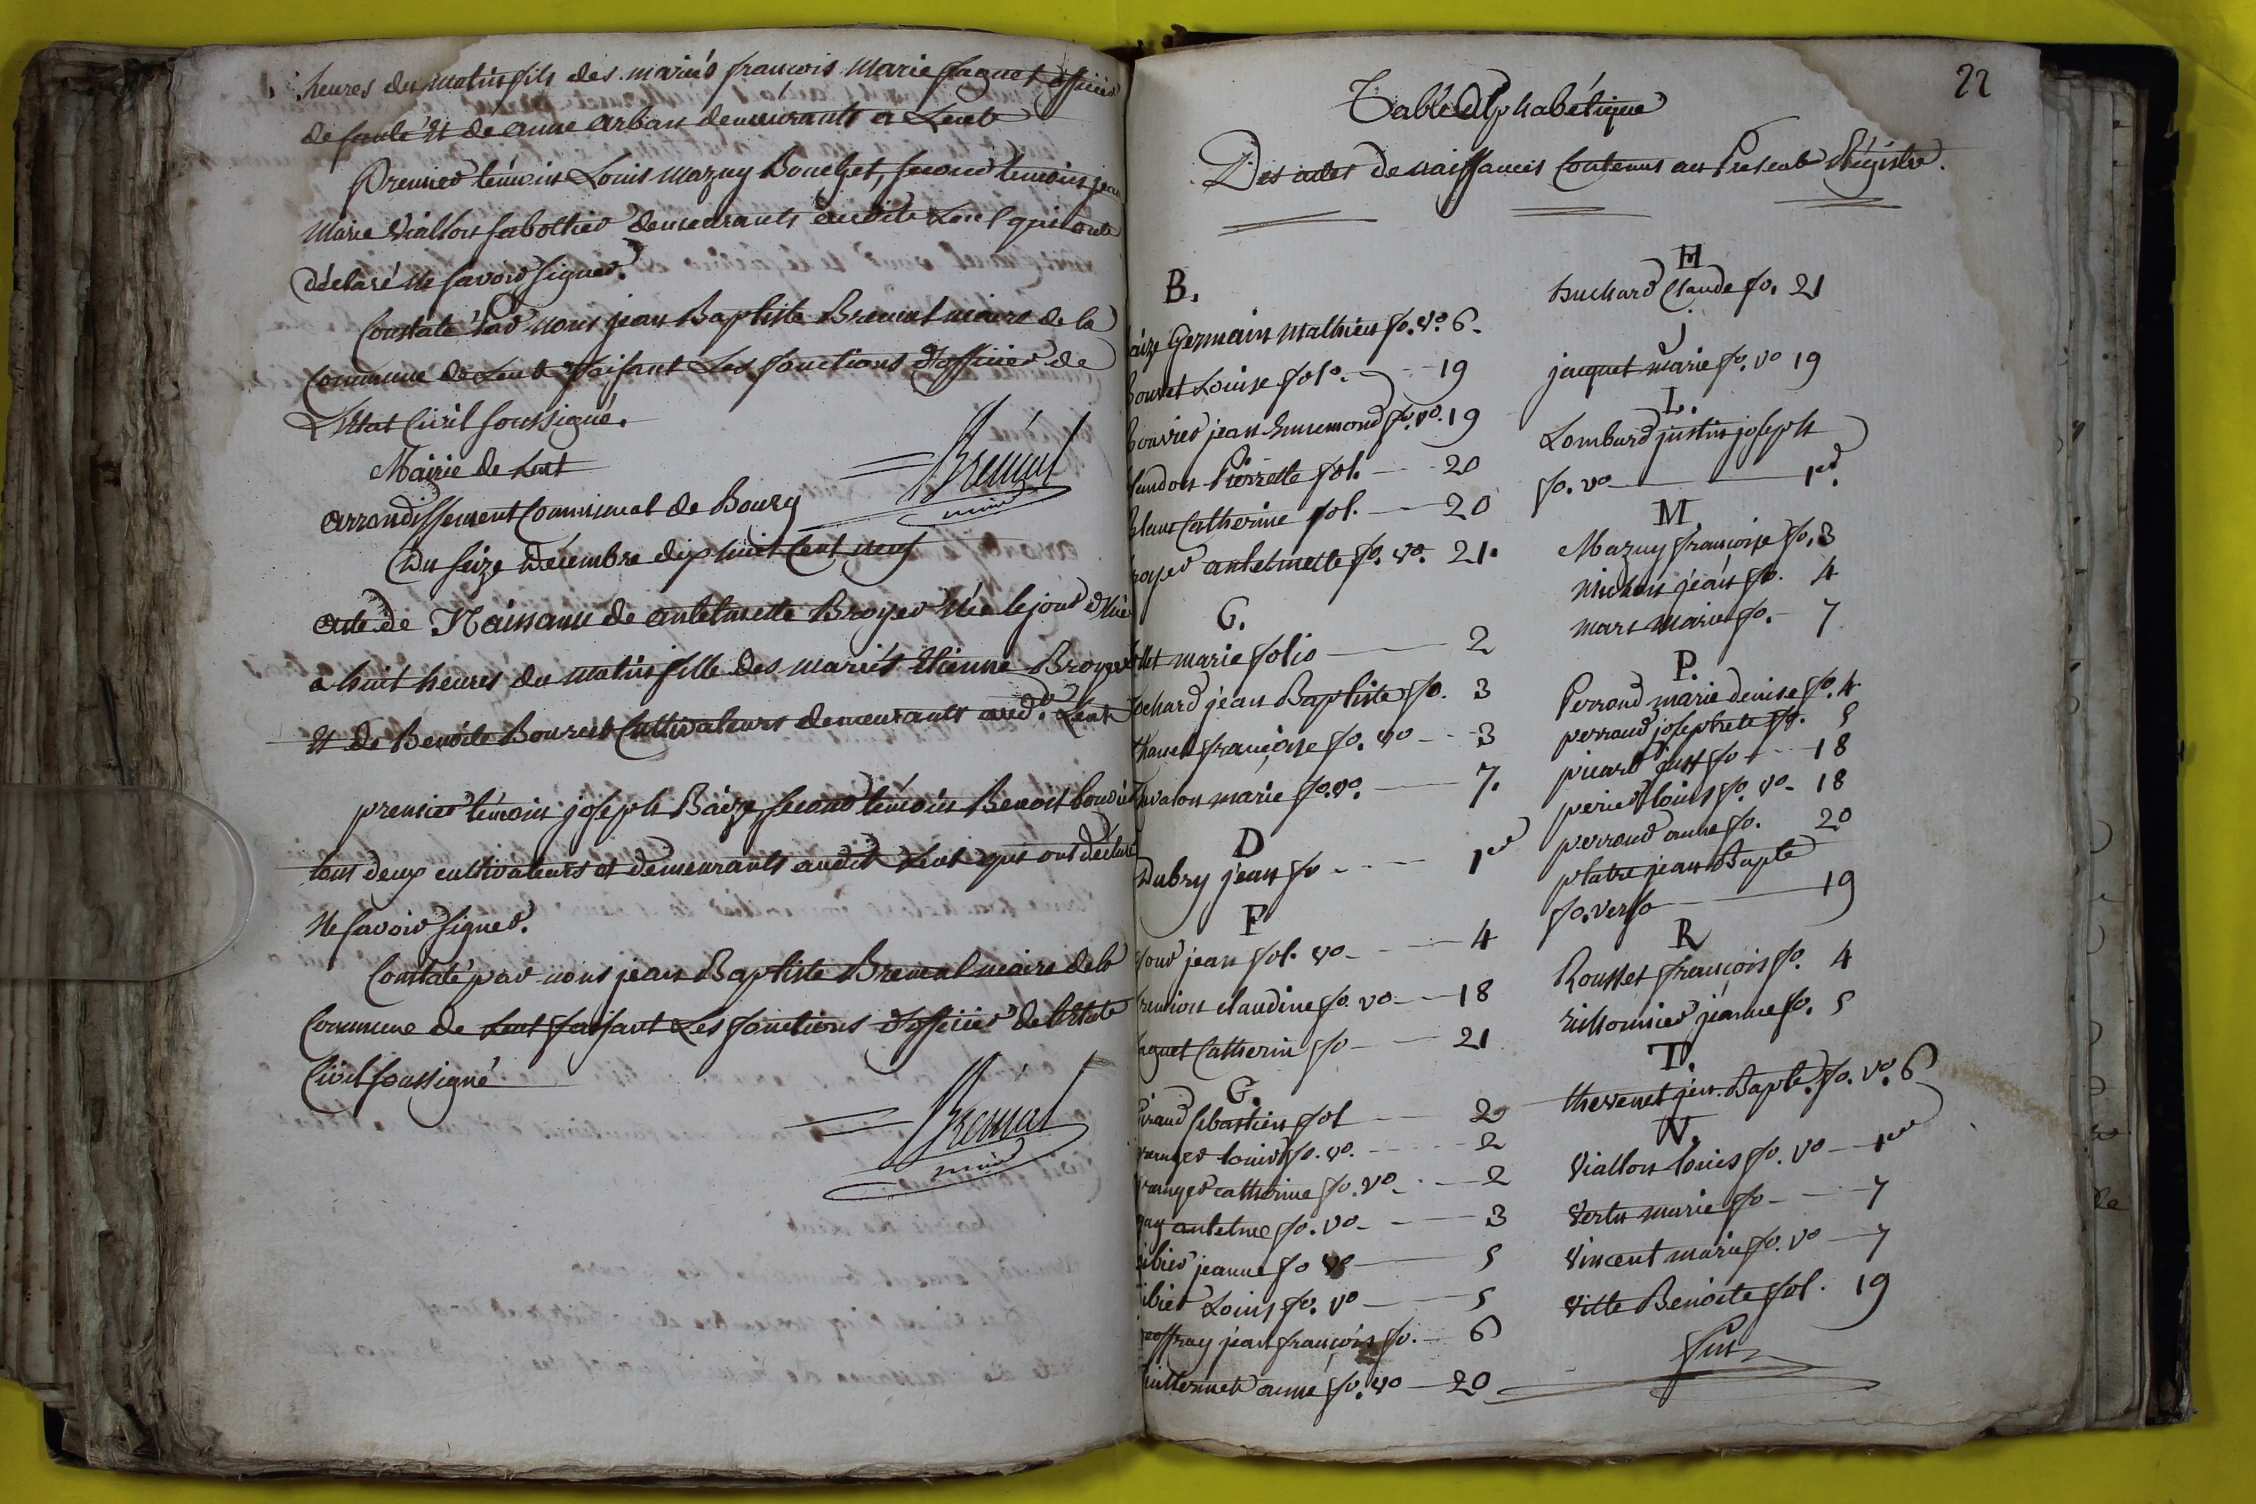 heures du matin fils des mariés françois Marie faguet officier
de santé Et de anne arban demeurants a Lent
Premier témoin Louis mazuy Boucher, second temoin jean
Marie Viallon sabottier demeurants audit Lent qui ont
déclaré ne savoir signer.
Constaté Par nous jean Baptiste Bremal maire de la
Commune de Lent faisant Les fonctions d'officier de
L'Etat Civil soussigné.
Bremal
maire
Mairie de Lent
arrondissement Communal de Bourg
Du seize Décembre dix huit Cent neuf
acte de Naissance de antelmette Broyer née le jour d'hier
a huit heures du matin fille des mariés Etienne Broyer
Et de Benoite Bourcet Cultivateurs demeurants aud.t Lent
premier témoin joseph Baize second témoin Benoit
tous deux cultivateurs et demeurants audit Lent qui ont déclaré
Ne savoir signer.
Constaté par nous jean Baptiste Bremal maire de la
Commune de Lent faisant Les fonctions d'officier de l'Etat
Civil soussigné
Bremal
maire
22
Table Alphabétique
Des actes de naissances Contenus au Present Régistre.
B.
aize Germain Mathieu fo. vo. 6.
bouvet Louise folo. 19
bouvier jean Ennemond fo. vo. 19
landon Pierrette fol. 20
blanc Catherine fol. 20
royer antelmette fo. vo. 21.
C.
llet marie folio 2
ochard jean Baptiste fo. 3
françoise fo. vo 3
valon marie fo. vo. 7.
D
Dubry jean fo 1er
F
four jean fol. vo 4
claudine fo. vo 18
aguet Catherin fo 21
G.
Giraud Sebastien fol 2
ranger louis fo. vo. 2
ranger catherine fo. vo. 2
gay antelme fo. vo 3
ibier jeanne fo vo 5
ibier Louis fo. vo 5
geoffray jean françois fo. 6
uillermet anne fo. vo 20
H
huchard Claude fo. 21
J
jacquet marie fo. vo 19
L.
Lombard justin joseph
fo. vo 1er.
M
Mazuy françoise fo. 3
michon jean fo. 4
mars marie fo. 7
P.
Perroud marie denise fo. 4
perroud josephete fo. 5
picard just fo 18
perier louis fo. vo 18
perroud anne fo. 20
platre jean Bapte
fo. verso 19
R
Rousset françois fo. 4
rissonnier jeanne fo. 5
T.
thevenet jean Bapte. fo. vo. 6
V
Viallon louis fo. vo 1er
Vertu marie fo 7
Vincent marie fo. vo 7
Ville Benoite fol. 19
fin